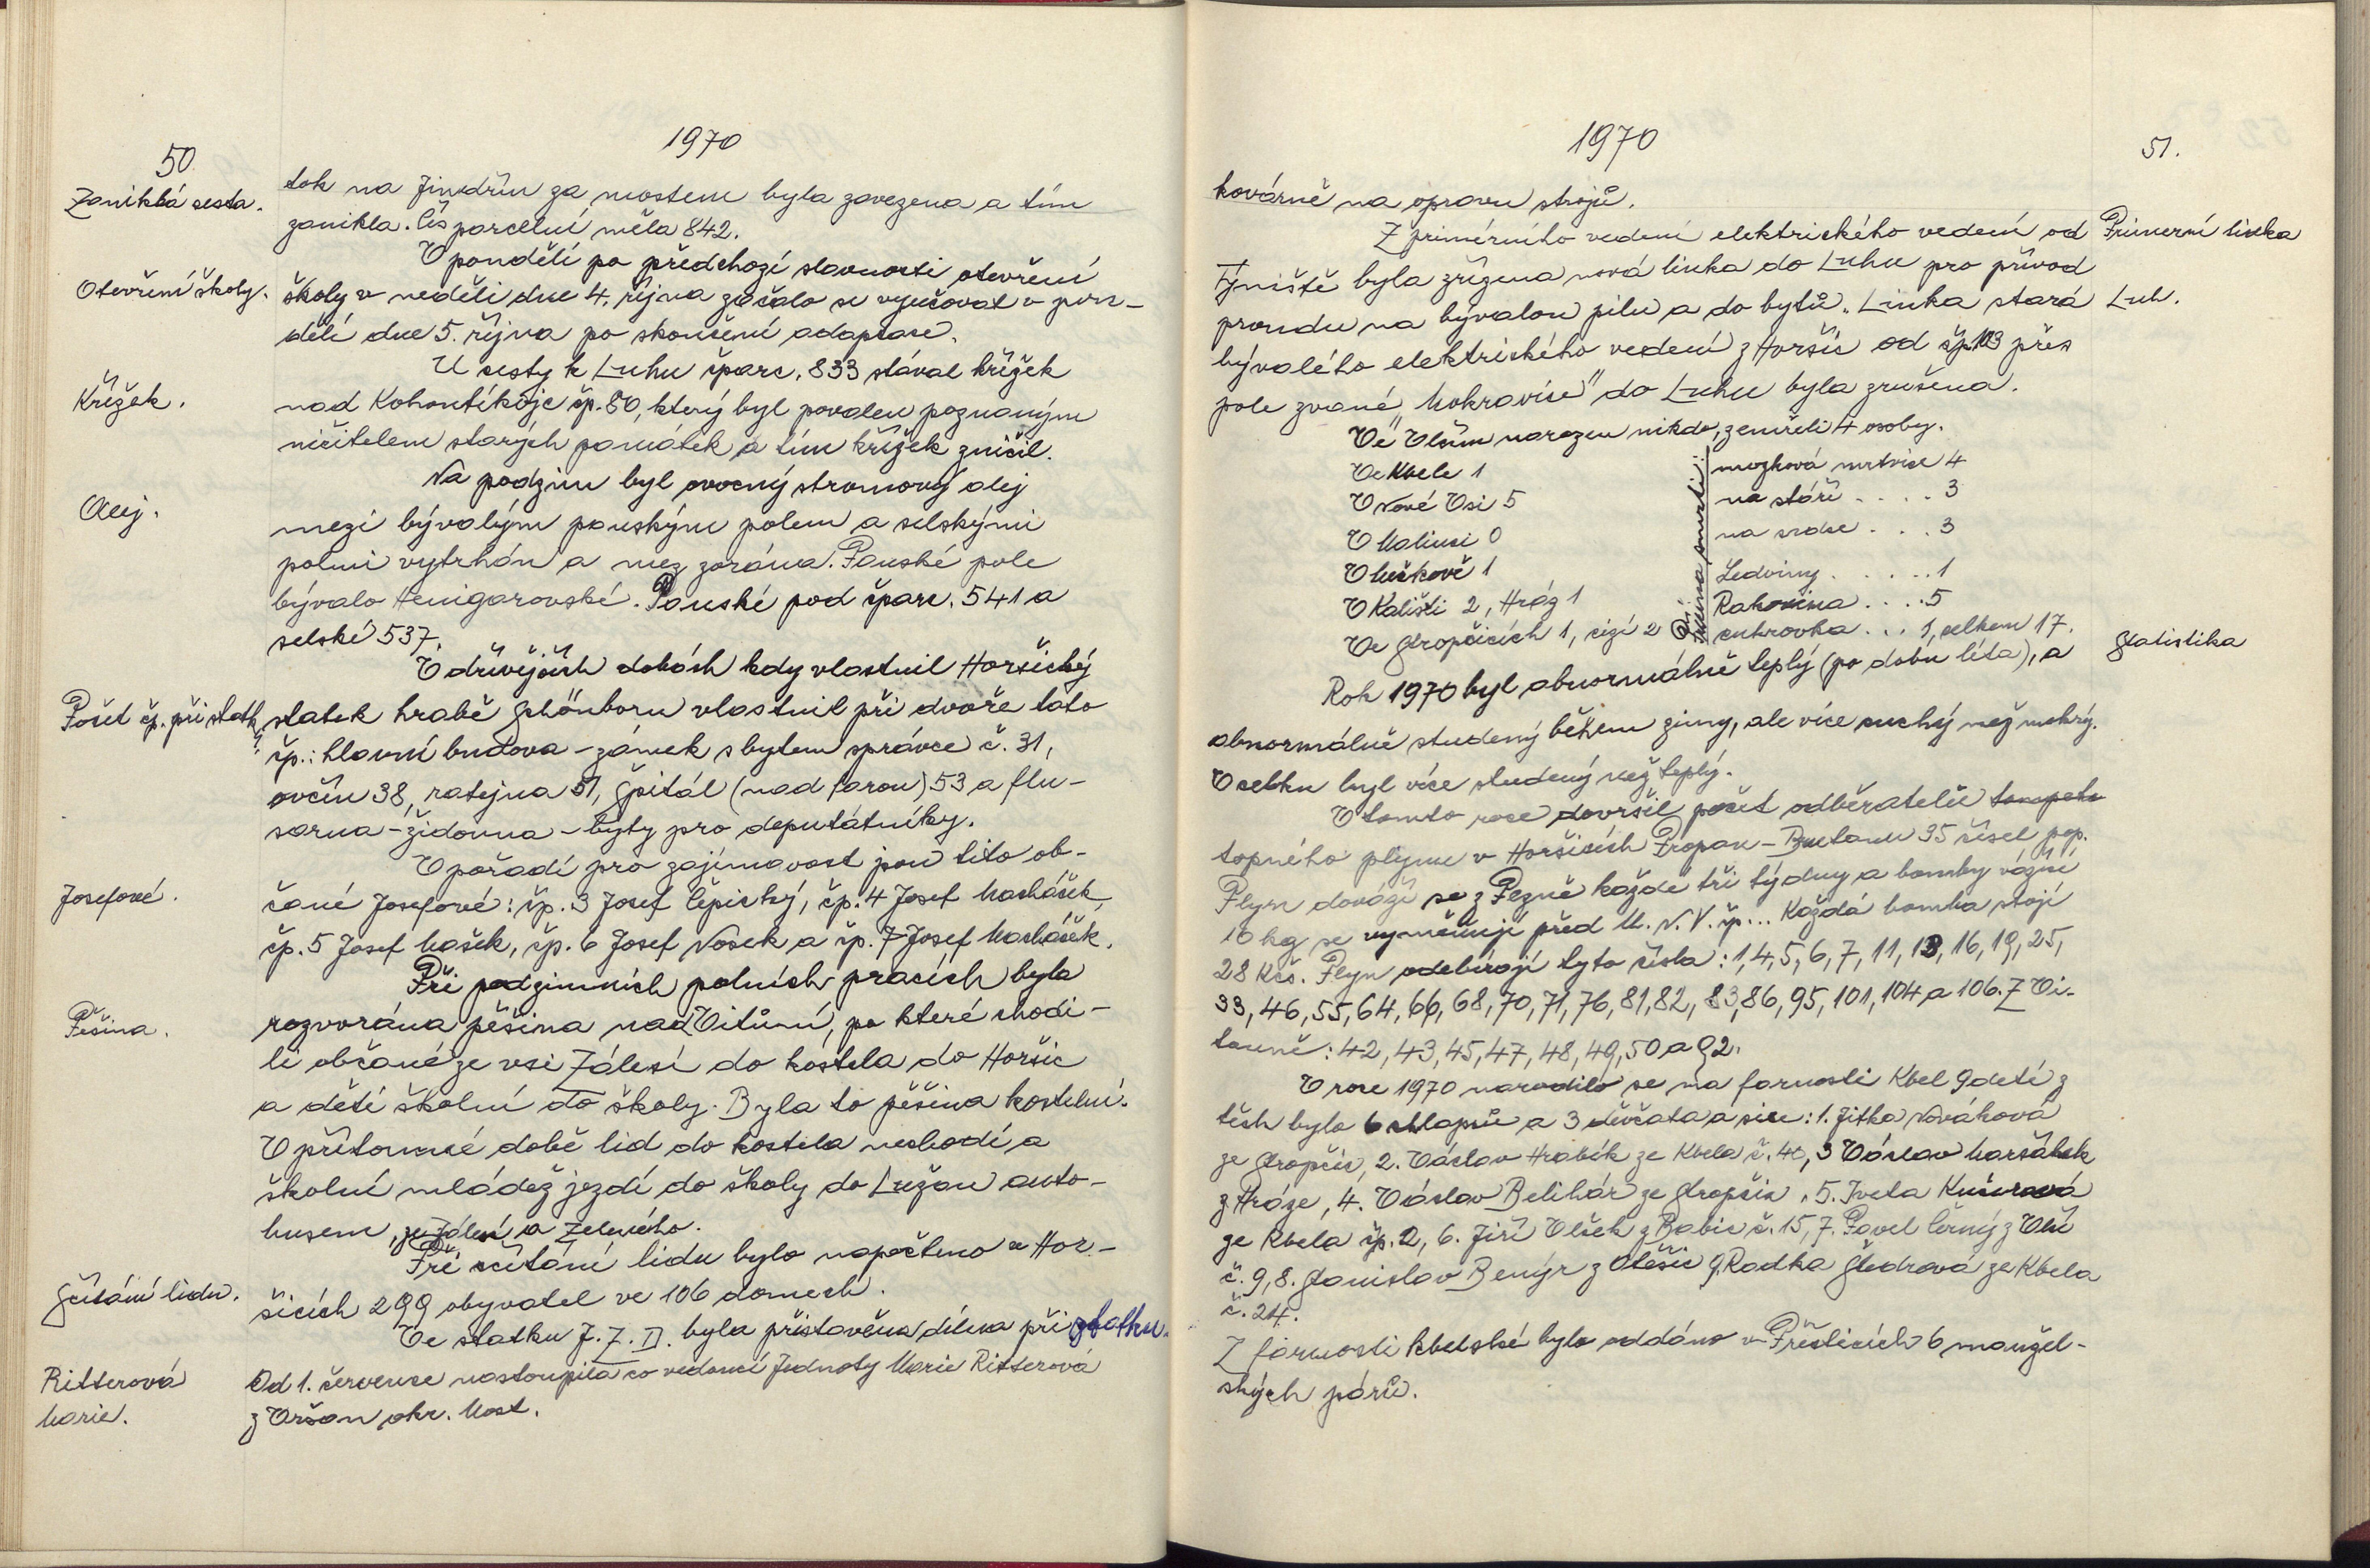 1970
50
Zaniklá cesta.
tok na Jindřín za mostem byla zavezena a tím
zanikla. Čís parcelní měla 842.
V pondělí po předchozí slavnosti otevření
Otevření školy.
školy v neděli dne 4. října začalo se vyučovat v pon-
dělí dne 5. října po skončení adaptace.
U cesty k Luhu čparc. 833 stával křížek
Křížek.
nad Kohoutíkojc čp. 80, který byl povalen poznaným
ničitelem starých památek a tím křížek zničil.
Na podzim byl ovocný stromový alej
Alej.
mezi bývalým panským polem a selskými
polmi vytrhán a mez zorána. Panské pole
bývalo Henigarovské. Panské pod čparc. 541 a
selské 537.
V dřívějších dobách kdy vlastnil Horšický
Počet čp. při statk.
statek hrabě Schönborn vlastnil při dvoře tato
čp.: hlavní budova – zámek s bytem správce č. 31,
ovčín 38, ratejna 51, špitál (nad farou) 53 a flu-
sárna – židovna – byty pro deputátníky.
V pořadí pro zajímavost jsou tito ob-
Josefové.
čané Josefové: čp. 3 Josef Čepický, čp. 4 Josef Macháček
čp. 5 Josef Mašek, čp. 6 Josef Nosek a čp. 7 Josef Macháček.
Při podzimních polních pracích byla
Pěšina.
rozvorána pěšina nad Vitouní, po které chodi-
li občané ze vsi Zálesí do kostela do Horšic
a děti školní do školy. Byla to pěšina kostelní.
V přítomné době lid do kostela nechodí a
školní mládež jezdí do školy do Lužan auto-
busem, ze Zálesí a Zeleného.
Při sčítání lidu bylo napočteno v Hor-
Sčítání lidu.
šicích 299 obyvatel ve 106 domech.
Ve statku J.Z.D. byla přistavěna dílna při statku.
Ritterová
Od 1. července nastoupila co vedoucí Jednoty Marie Ritterová
Marie.
z Vršan okr. Most.
1970
51.
kovárně na opravu strojů.
Z primérního vedení elektrického vedení od
Primerní linka
Týniště byla zřízena nová linka do Luhu pro přívod
proudu na bývalou pilu a do bytů. Linka stará
Luh.
bývalého elektrického vedení z Horšic od čp. 103 přes
pole zvané „Mokravice" do Luhu byla zrušena.
Ve Vlčím narozen nikdo, zemřeli 4 osoby.
Ve Kbele 1
V Nové Vsi 5
V Malinci 0
V Mečkově 1
V Kališti 2, Hráz 1
Ve Stropčicích 1, cizí 2
Příčina smrti:
mozková mrtvice 4
na stáří . . . . 3
na srdce . . . 3
Ledviny . . . . . 1
Rakovina . . . . 5
cukrovka . . . 1, celkem 17.
Statistika
Rok 1970 byl abnormálně teplý (po dobu léta), a
abnormálně studený během zimy, ale více suchý než mokrý.
V celku byl více studený než teplý.
V tomto roce dovršil počet odběratelů
topného plynu v Horšicích Propan – Butanu 35 čísel pop.
Plyn dováží se z Plzně každé tři týdny a bomby vážní
10 kg se vyměňují před M. N. V. čp... Každá bomba stojí
28 Kčs. Plyn odebírají tyto čísla: 1, 4, 5, 6, 7, 11, 13, 16, 19, 25,
33, 46, 55, 64, 66, 68, 70, 71, 76, 81, 82, 83, 86, 95, 101, 104 a 106. Z Vi-
touně: 42, 43, 45, 47, 48, 49, 50 a 92.
V roce 1970 narodilo se na farnosti Kbel 9 detí z
těch bylo 6 chlapců a 3 děvčata a sice: 1. Jitka Nováková
ze Stropčic, 2. Václav Hrabík ze Kbela č. 40, 3 Václav Maršálek
z Hráze, 4. Václav Belihár ze Stropčic, 5. Iveta Kučerová
ze Kbela čp. 2, 6. Jiří Vlček z Babic č. 15, 7. Pavel Černý z Vlčí
č. 9, 8. Stanislav Benýr z Otěšic 9. Radka Štedrová ze Kbela
č. 24.
Z farnosti kbelské bylo oddáno v Přešticích 6 manžel-
ských párů.